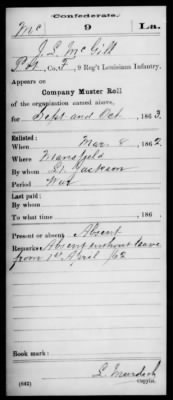 Confederate.
Mc 9 La.
J. L. McGill
Pvt, Co. F, 9 Reg't Louisiana Infantry.
Appears on
Company Muster Roll
of the organization named above,
for Sept and Oct, 1863.
Enlisted:
When Mar. 8, 1862
Where Mansfield
By whom Lt. Jackson
Period War
Last paid:
By whom
To what time , 186 .
Present or absent Absent
Remarks: Absent without leave
from 1st April /62
Book mark:
(642) L. Murdoch
Copyist.